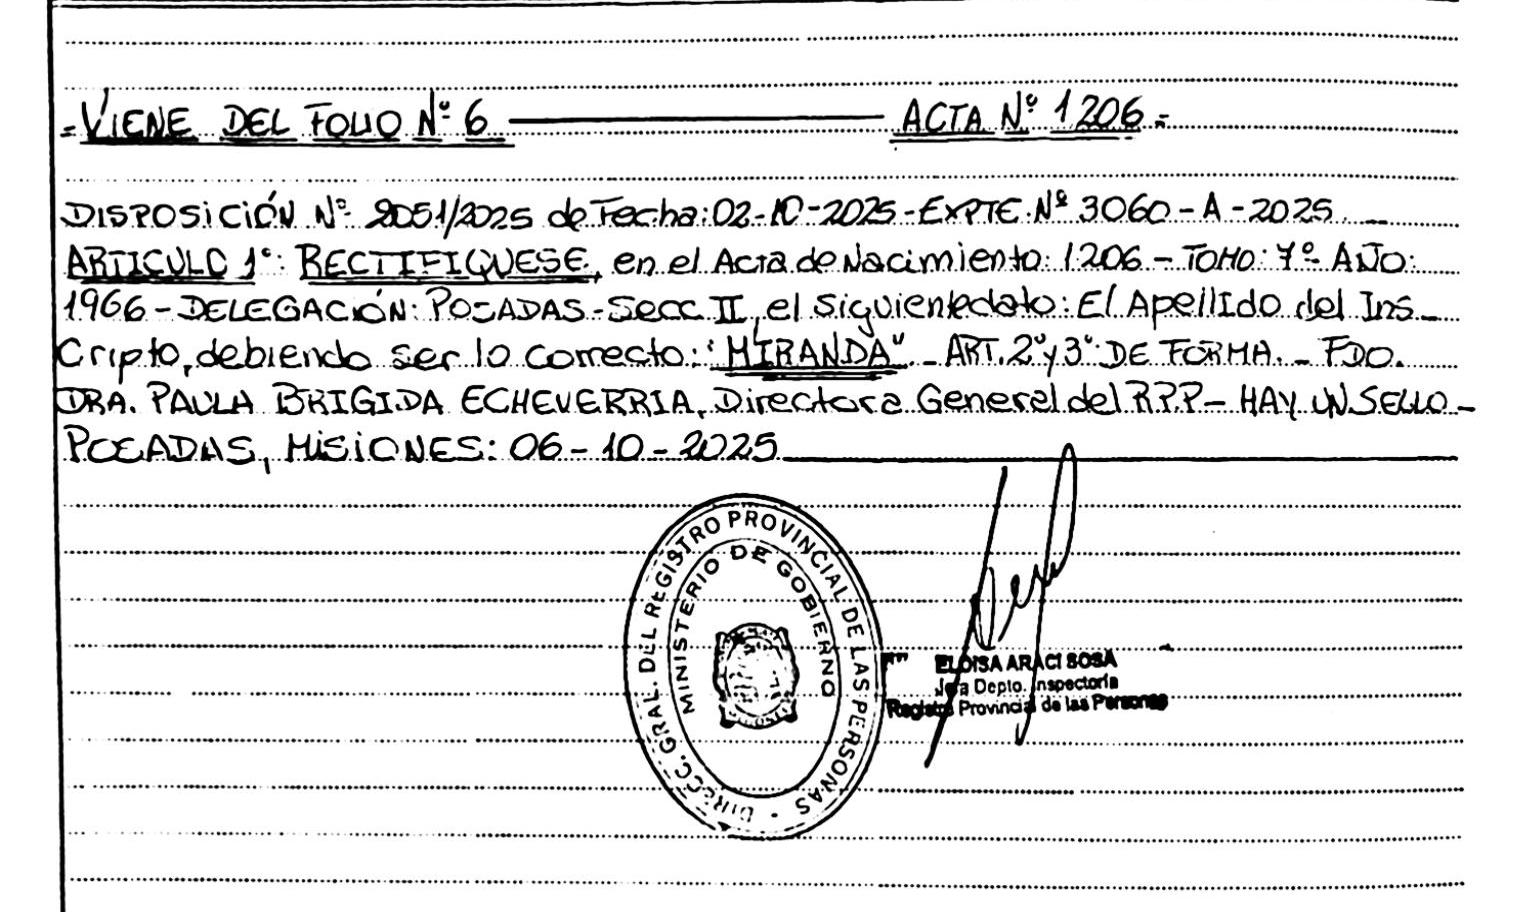 = VIENE DEL FOLIO Nº 6 ——— ACTA Nº 1206.=
DISPOSICIÓN Nº 2051/2025 de Fecha: 02-10-2025-EXPTE Nº 3060-A-2025
ARTICULO 1º: RECTIFIQUESE, en el Acta de Nacimiento: 1206 - TOMO: 7º AÑO:
1966 - DELEGACIÓN: POSADAS - Secc II, el siguiente dato: El Apellido del Ins_
Cripto, debiendo ser lo correcto: "MIRANDA". ART. 2º y 3º DE FORMA. _ FDO.
DRA. PAULA BRIGIDA ECHEVERRIA, Directora General del R.P.P - HAY UN SELLO -
POSADAS, MISIONES: 06-10-2025
DIRECC. GRAL. DEL REGISTRO PROVINCIAL DE LAS PERSONAS
MINISTERIO DE GOBIERNO
ELOISA ARACI SOSA
Jefa Depto. Inspectoría
Registro Provincial de las Personas